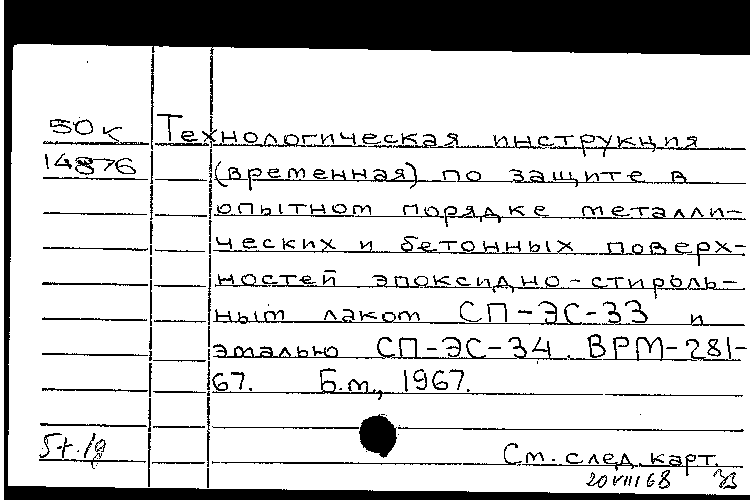 50к Технологическая инструкция
14876 (временная) по защите в
опытном порядке металли-
ческих и бетонных поверх-
ностей эпоксидно-стироль-
ным лаком СП-ЭС-33 и
эмалью СП-ЭС-34. ВРМ-281-
67. Б.м., 1967.
См. след. карт.
20 VIII 68